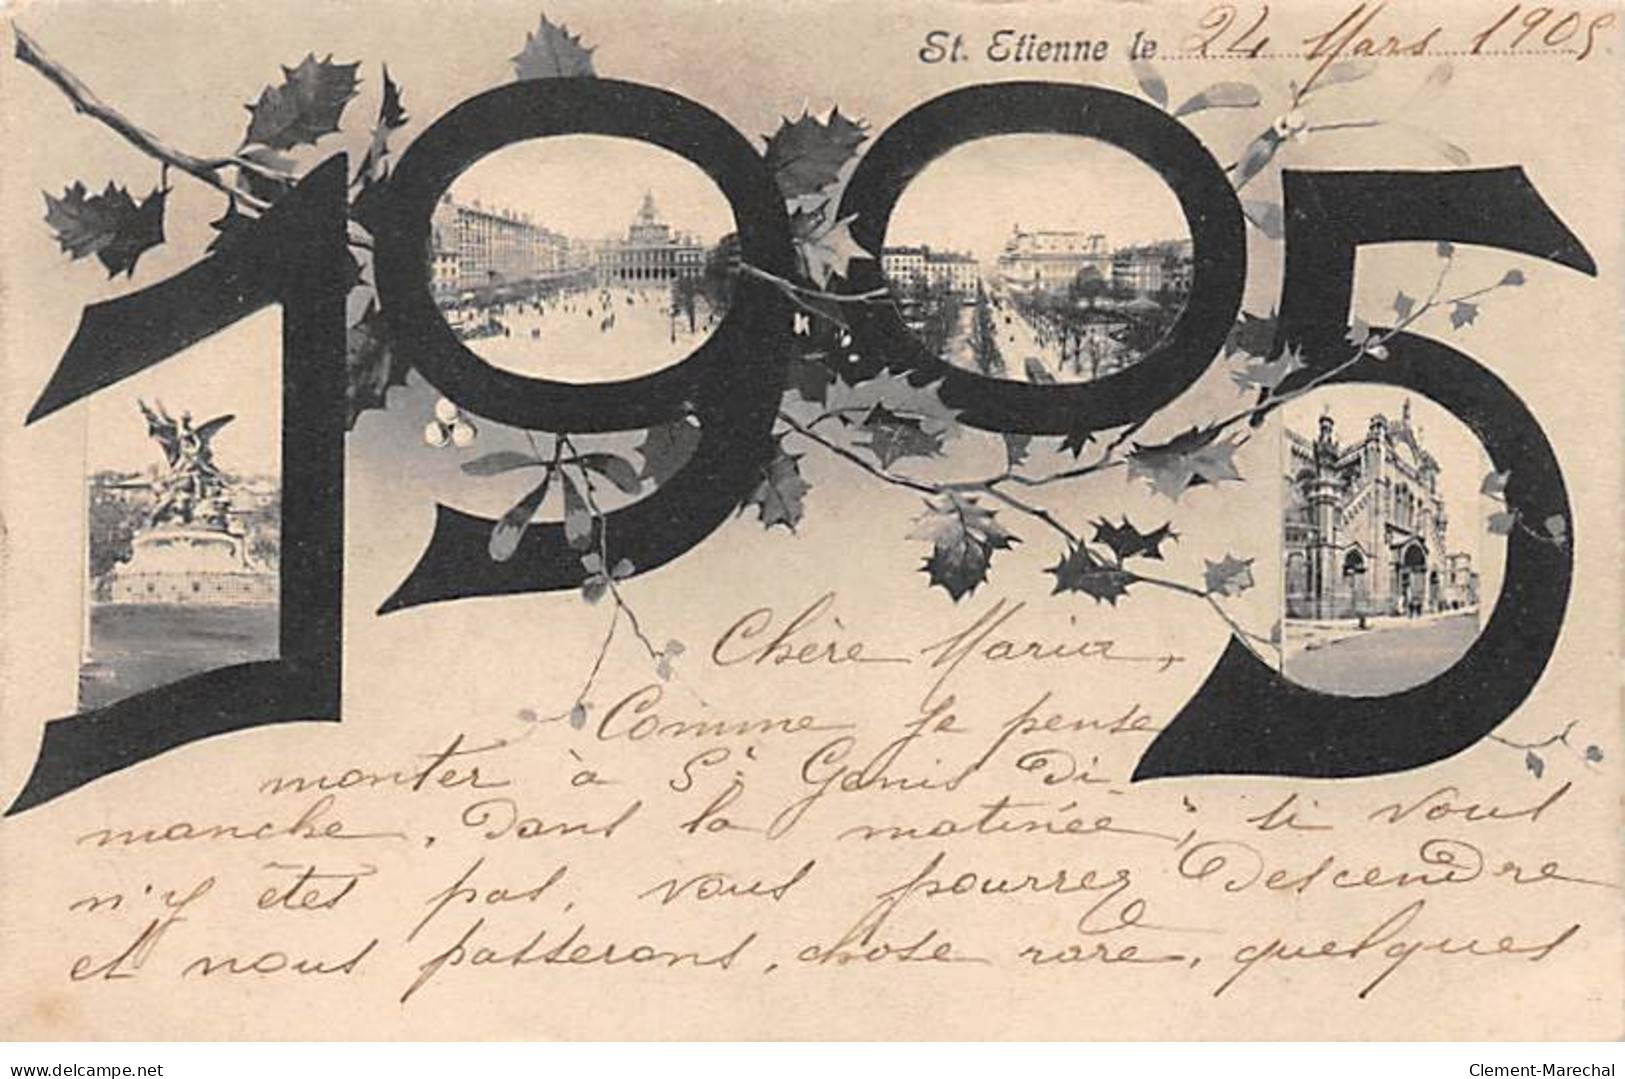 St. Etienne le 24 Mars 1905
1905
Chère Maria,
Comme je pense
monter à St Genis Di
manche, dans la matinée, si vous
n'y êtes pas, vous pourrez descendre
et nous passerons, chose rare, quelques
delcampe.net
Clement-Marechal